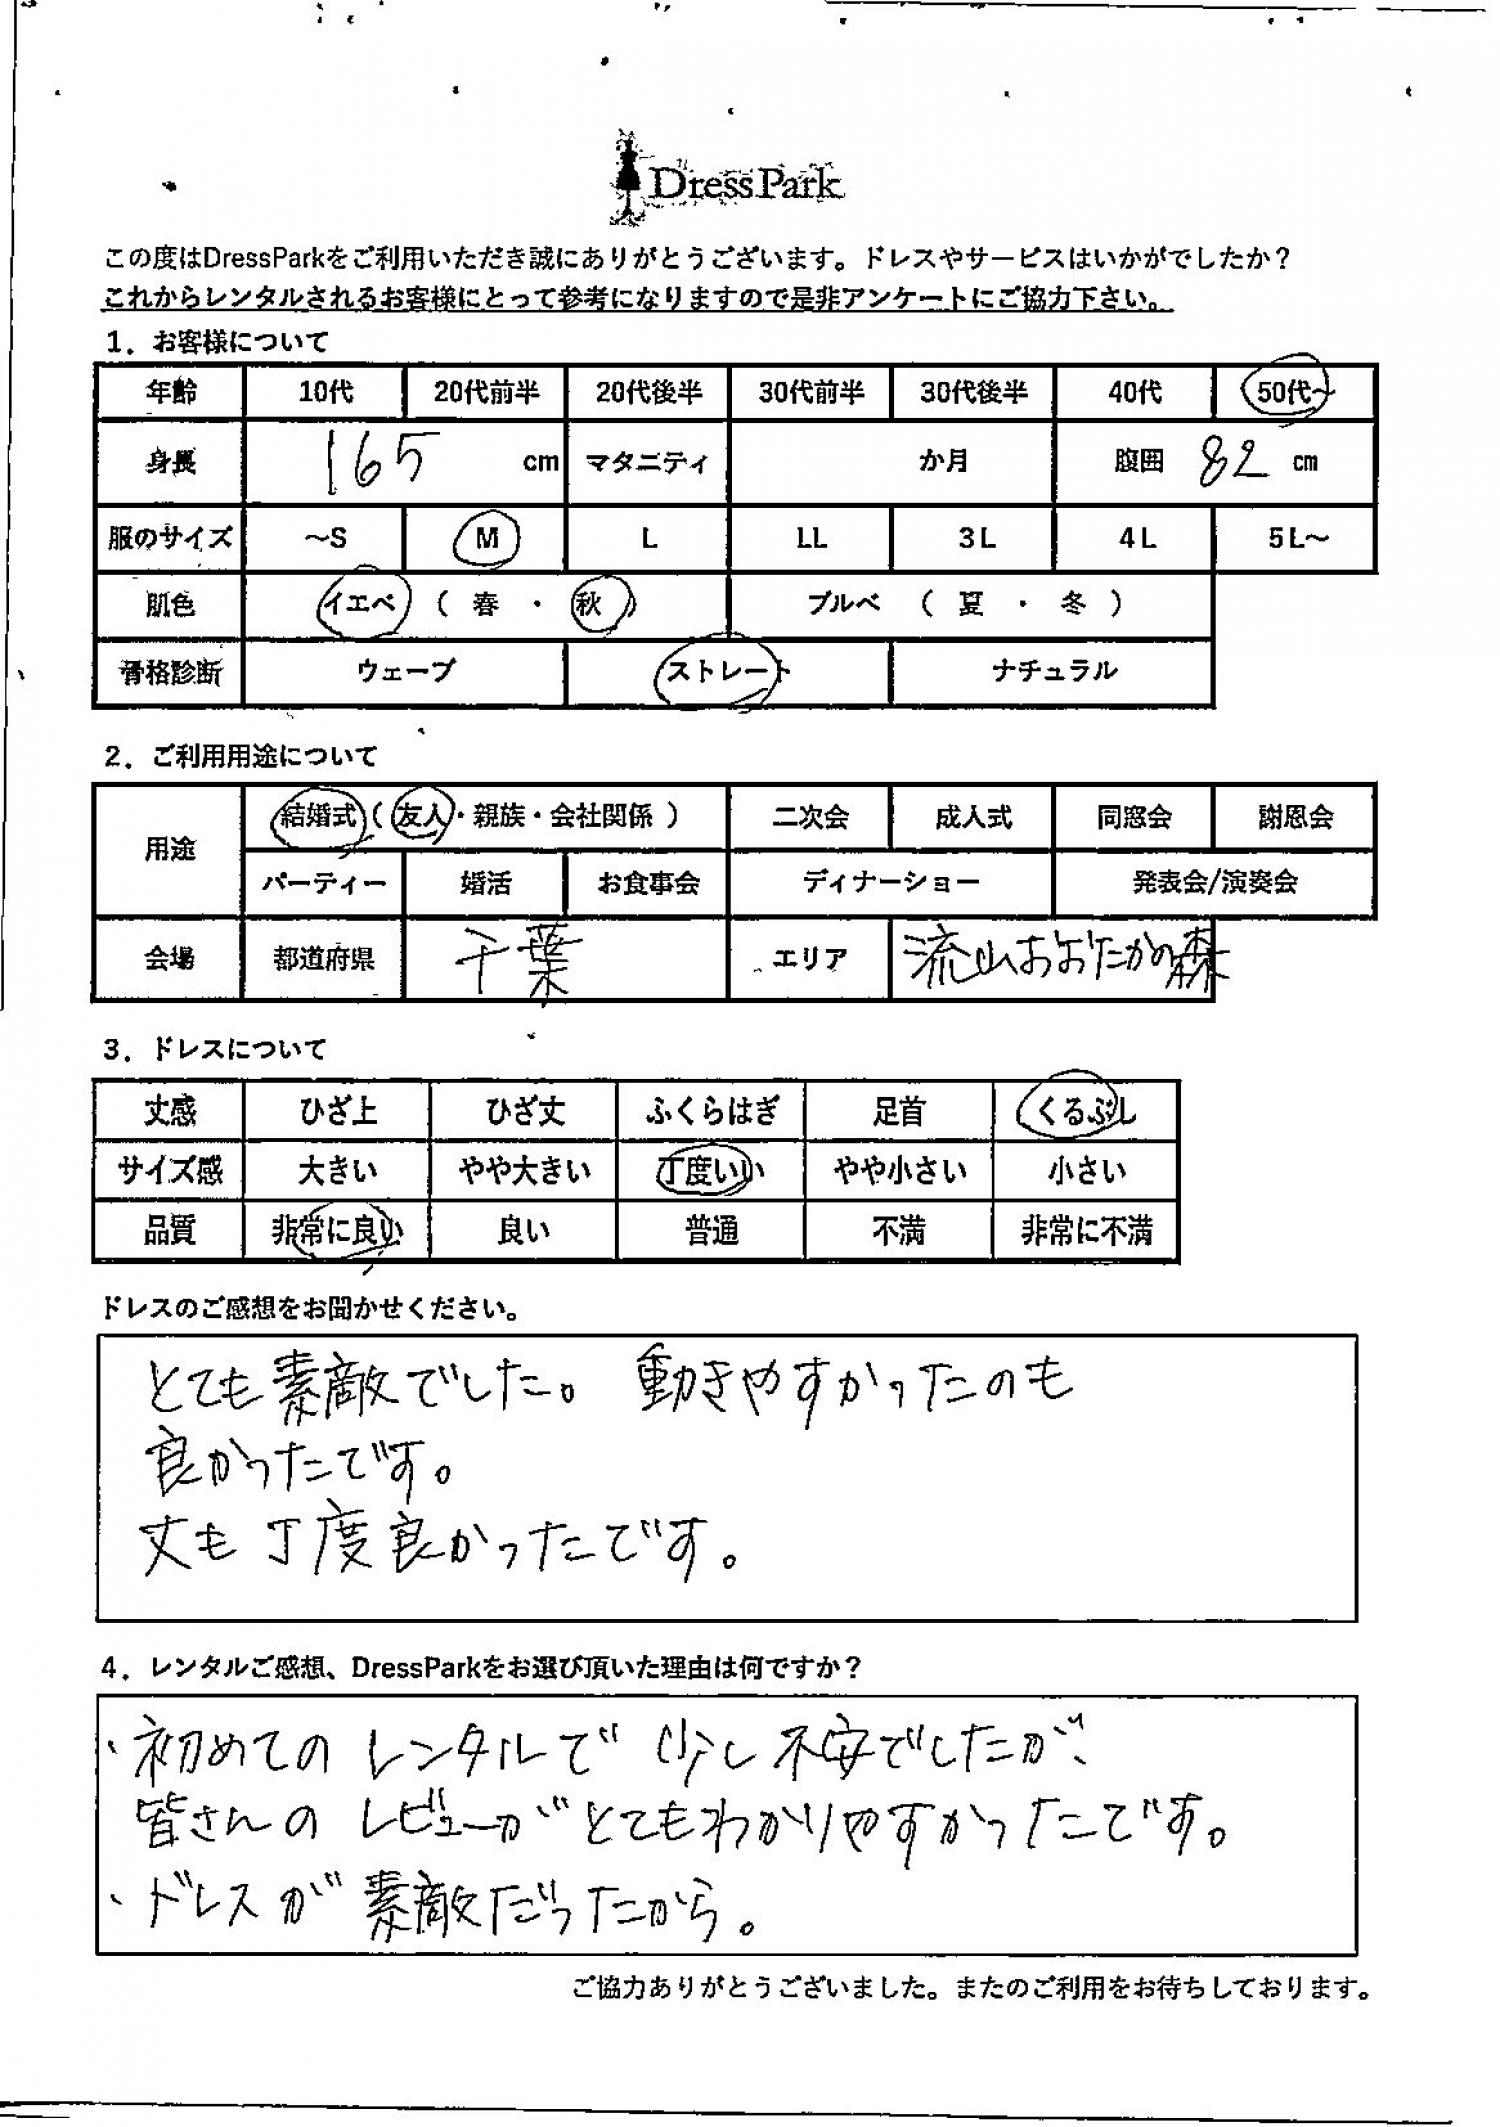 DressPark
この度はDressParkをご利用いただき誠にありがとうございます。ドレスやサービスはいかがでしたか？
これからレンタルされるお客様にとって参考になりますので是非アンケートにご協力下さい。
1．お客様について
年齢 10代 20代前半 20代後半 30代前半 30代後半 40代 50代～
身長 165 cm マタニティ か月 腹囲 82 cm
服のサイズ ～S M L LL 3L 4L 5L～
肌色 イエベ （ 春 ・ 秋 ） ブルベ （ 夏 ・ 冬 ）
骨格診断 ウェーブ ストレート ナチュラル
2．ご利用用途について
用途 結婚式（ 友人・親族・会社関係 ） 二次会 成人式 同窓会 謝恩会
パーティー 婚活 お食事会 ディナーショー 発表会/演奏会
会場 都道府県 千葉 エリア 流山おおたかの森
3．ドレスについて
丈感 ひざ上 ひざ丈 ふくらはぎ 足首 くるぶし
サイズ感 大きい やや大きい 丁度いい やや小さい 小さい
品質 非常に良い 良い 普通 不満 非常に不満
ドレスのご感想をお聞かせください。
とても素敵でした。動きやすかったのも
良かったです。
丈も丁度良かったです。
4．レンタルご感想、DressParkをお選び頂いた理由は何ですか？
・初めてのレンタルで少し不安でしたが、
皆さんのレビューがとてもわかりやすかったです。
・ドレスが素敵だったから。
ご協力ありがとうございました。またのご利用をお待ちしております。